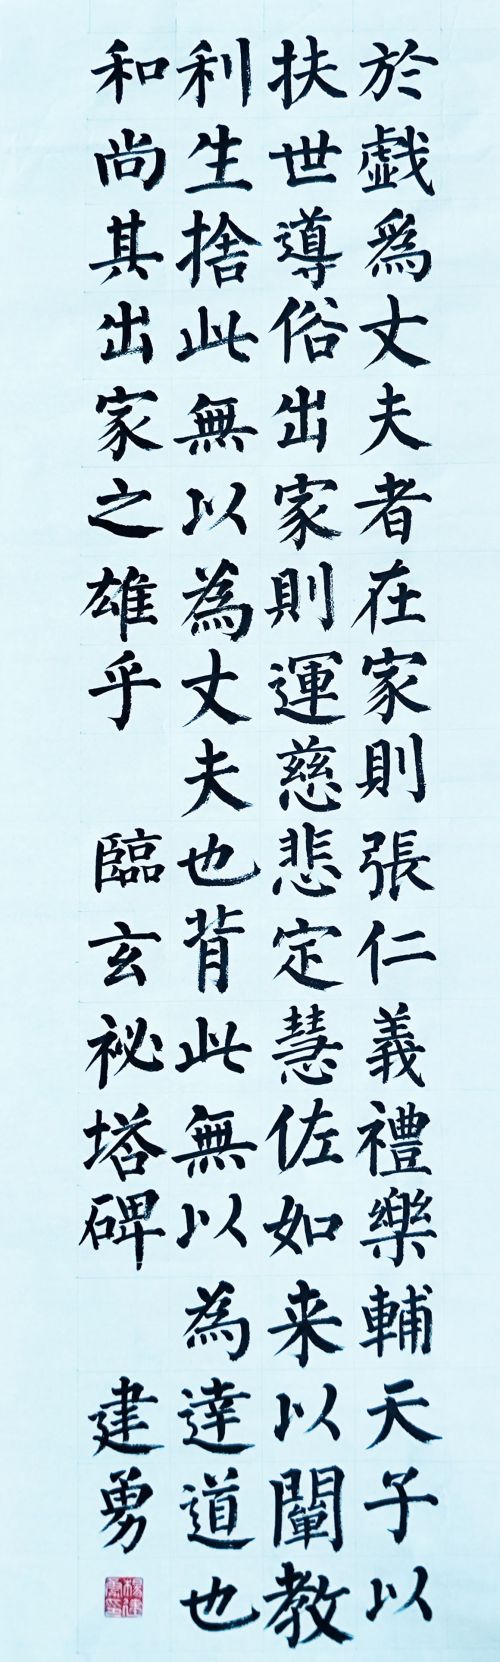 於戯爲丈夫者在家則張仁義禮樂輔天子以
扶世導俗出家則運慈悲定慧佐如来以闡教
利生捨此無以為丈夫也背此無以為達道也
和尚其出家之雄乎 臨玄祕塔碑 建勇